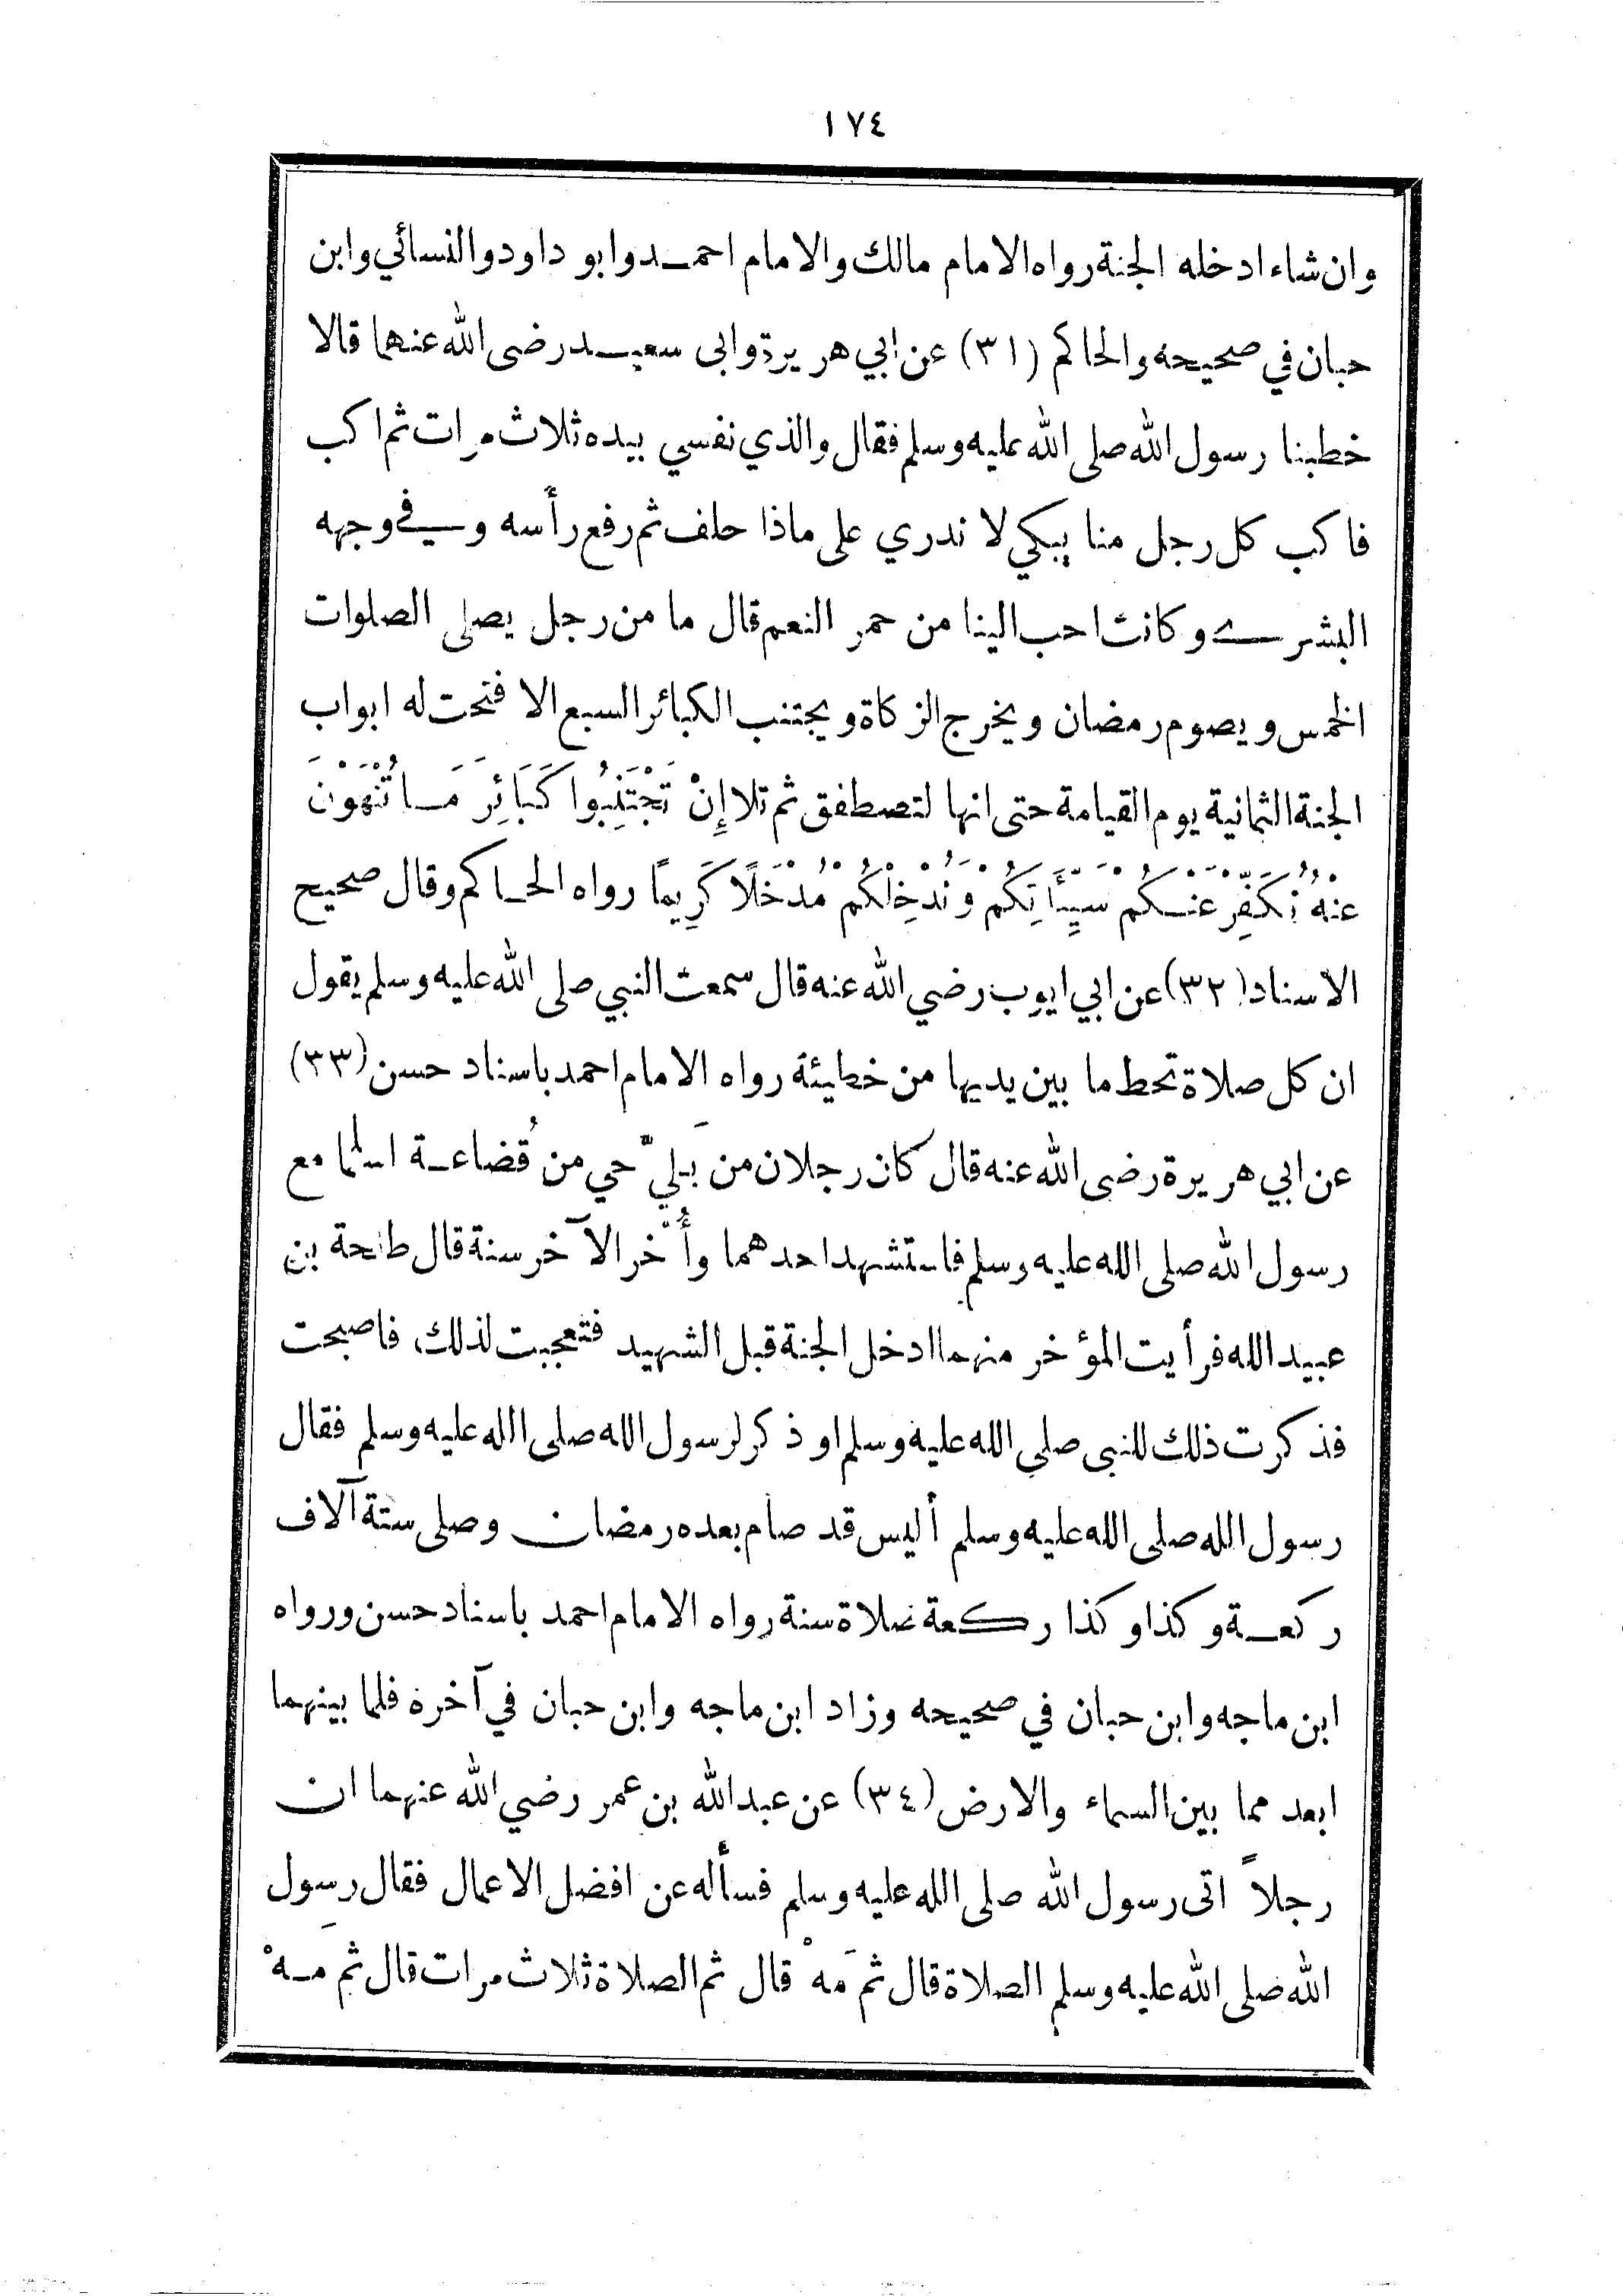 ١٧٤
وان شاء ادخله الجنة رواه الامام مالك والامام احمد وابو داود والنسائي وابن
حبان في صحيحه والحاكم (٣١) عن ابي هريرة وابى سعيد رضى الله عنهما قالا
خطبنا رسول الله صلى الله عليه وسلم فقال والذي نفسي بيده ثلاث مرات ثم اكب
فاكب كل رجل منا يبكي لا ندري على ماذا حلف ثم رفع رأسه وفي وجهه
البشرى وكانت احب الينا من حمر النعم قال ما من رجل يصلى الصلوات
الخمس ويصوم رمضان ويخرج الزكاة ويجتنب الكبائر السبع الا فتحت له ابواب
الجنة الثمانية يوم القيامة حتى انها لتصطفق ثم تلا إِنْ تَجْتَنِبُوا كَبَائِرَ مَا تُنْهَوْنَ
عَنْهُ نُكَفِّرْ عَنْكُمْ سَيِّئَاتِكُمْ وَنُدْخِلْكُمْ مُدْخَلًا كَرِيمًا رواه الحاكم وقال صحيح
الاسناد (٣٢) عن ابي ايوب رضي الله عنه قال سمعت النبي صلى الله عليه وسلم يقول
ان كل صلاة تحط ما بين يديها من خطيئة رواه الامام احمد باسناد حسن (٣٣)
عن ابي هريرة رضى الله عنه قال كان رجلان من بَليّ حي من قُضاعة اسلما مع
رسول الله صلى الله عليه وسلم فاستشهد احدهما وأُخّر الآخر سنة قال طلحة بن
عبيد الله فرأيت المؤخر منهما ادخل الجنة قبل الشهيد فتعجبت لذلك فاصبحت
فذكرت ذلك للنبي صلى الله عليه وسلم او ذكر لرسول الله صلى الله عليه وسلم فقال
رسول الله صلى الله عليه وسلم أليس قد صام بعده رمضان وصلى ستة آلاف
ركعة وكذا وكذا ركعة صلاة سنة رواه الامام احمد باسناد حسن ورواه
ابن ماجه وابن حبان في صحيحه وزاد ابن ماجه وابن حبان في آخره فلما بينهما
ابعد مما بين السماء والارض (٣٤) عن عبد الله بن عمر رضي الله عنهما ان
رجلاً اتى رسول الله صلى الله عليه وسلم فسأله عن افضل الاعمال فقال رسول
الله صلى الله عليه وسلم الصلاة قال ثم مَهْ قال ثم الصلاة ثلاث مرات قال ثم مَهْ